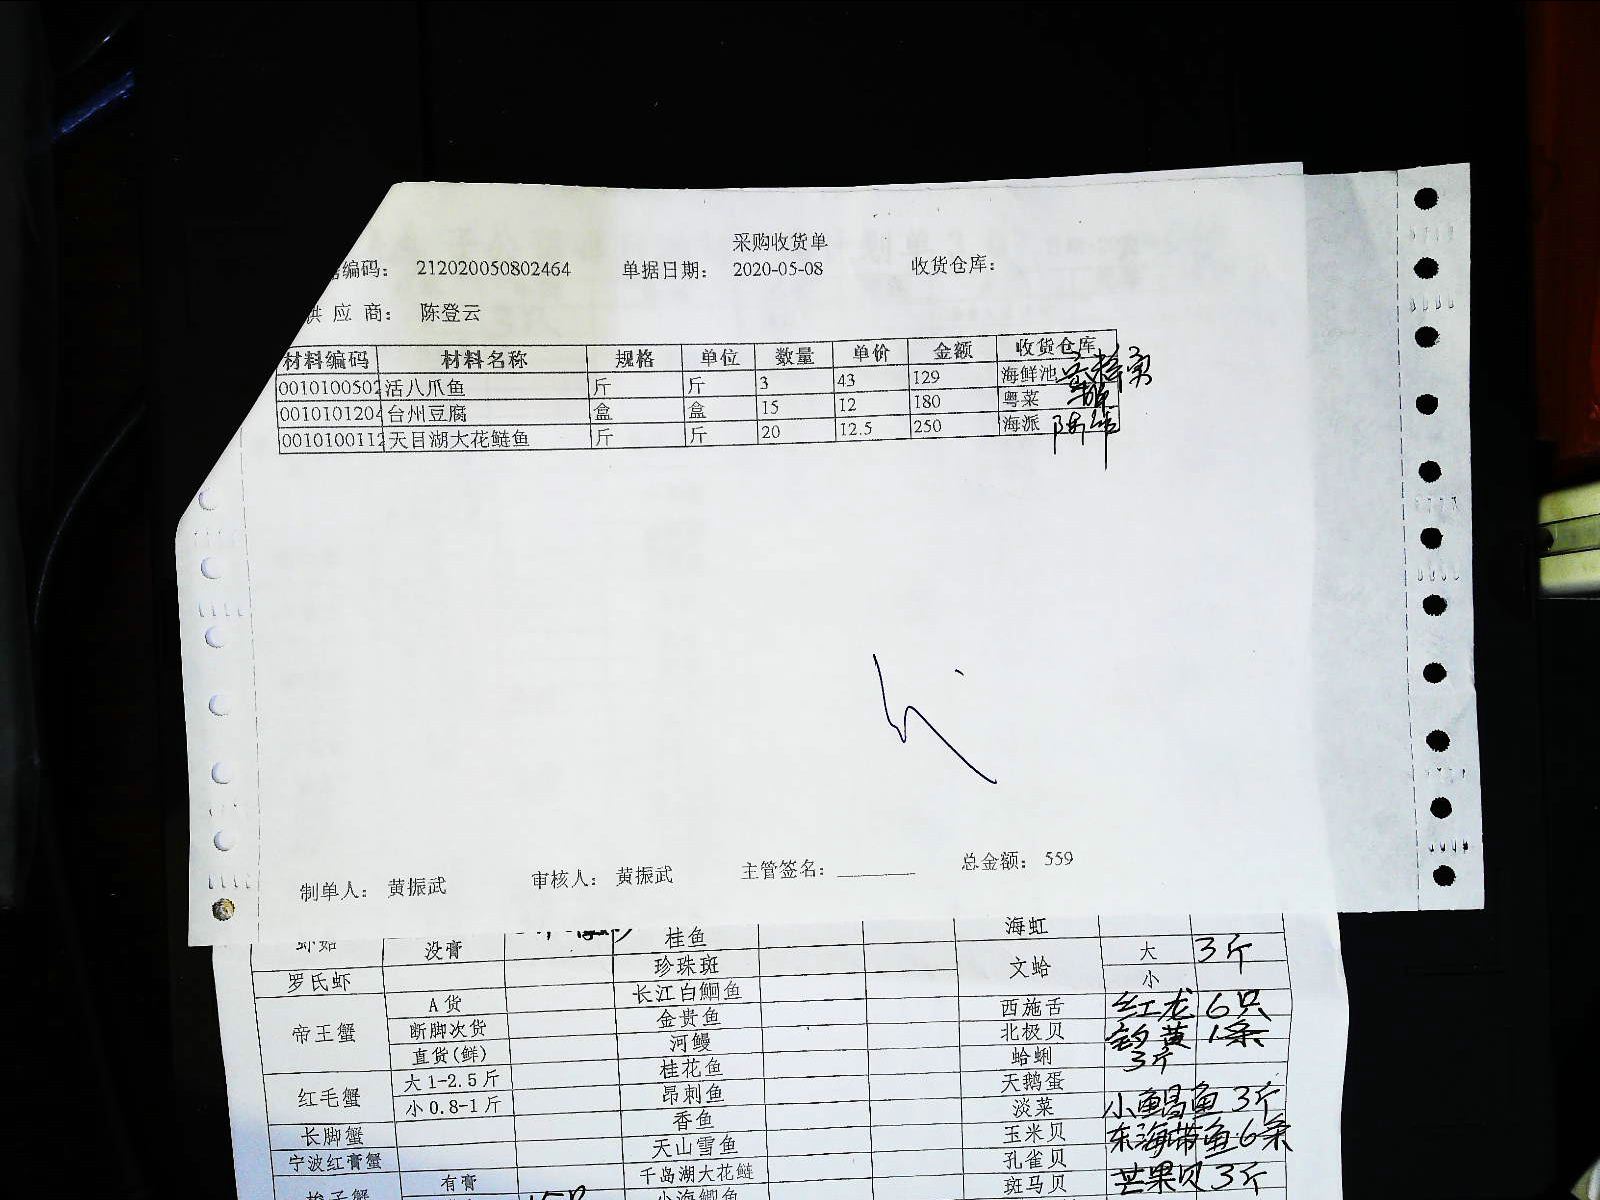 采购收货单
编码： 212020050802464 单据日期： 2020-05-08 收货仓库：
供 应 商： 陈登云
材料编码 材料名称 规格 单位 数量 单价 金额 收货仓库
001010050 活八爪鱼 斤 斤 3 43 129 海鲜池
001010120 台州豆腐 盒 盒 15 12 180 粤菜
001010011 天目湖大花鲢鱼 斤 斤 20 12.5 250 海派
制单人： 黄振武 审核人： 黄振武 主管签名： 总金额： 559
没膏 桂鱼 海虹
罗氏虾 珍珠斑 文蛤 大 3斤
长江白鮰鱼 小
帝王蟹 A货 金贵鱼 西施舌 红龙 6只
断脚次货 河鳗 北极贝 黄 1条
直货(鲜) 桂花鱼 蛤蜊 3斤
红毛蟹 大1-2.5斤 昂刺鱼 天鹅蛋
小0.8-1斤 香鱼 淡菜 小鲳鱼 3斤
长脚蟹 天山雪鱼 玉米贝 东海带鱼 6条
宁波红膏蟹 千岛湖大花鲢 孔雀贝
有膏 斑马贝 芒果贝 3斤